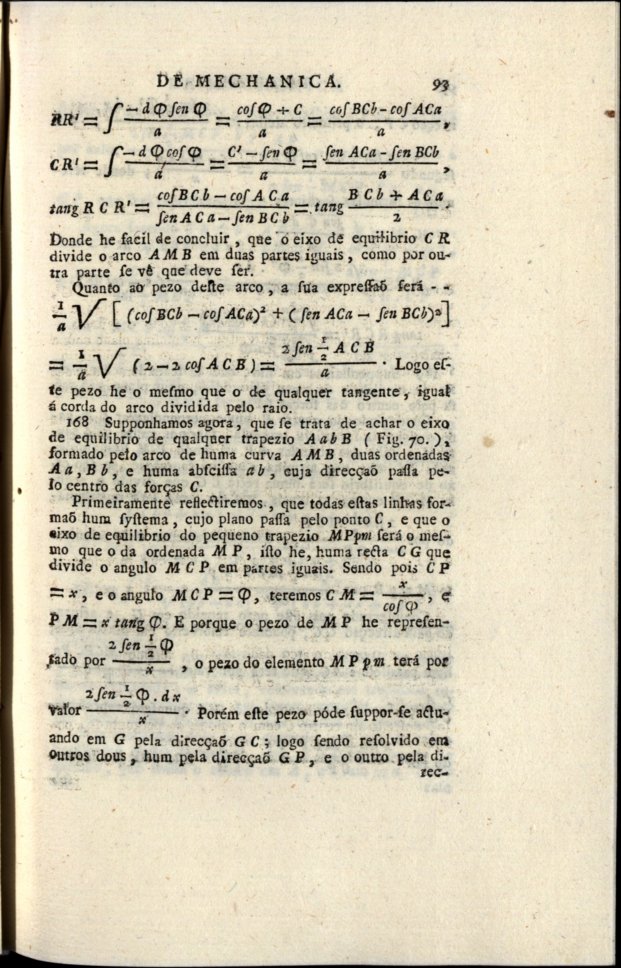 DE MECHANICA. 93
RR' = ∫ (— d Φ ſen Φ)/a = (coſ Φ + C)/a = (coſ BCb - coſ ACa)/a ,
CR' = ∫ (— d Φ coſ Φ)/a = (C' — ſen Φ)/a = (ſen ACa - ſen BCb)/a ,
tang R C R' = (coſ B C b — coſ A C a)/(ſen A C a — ſen B C b) = tang (B C b + A C a)/2 .
Donde he facil de concluir, que o eixo de equilibrio C R
divide o arco A M B em duas partes iguais, como por ou-
tra parte ſe vê que deve ſer.
Quanto ao pezo deſte arco, a ſua expreſſaõ ſerá - -
1/a √ [ (coſ BCb — coſ ACa)² + (ſen ACa — ſen BCb)² ]
= 1/a √ (2 — 2 coſ A C B) = (2 ſen ½ A C B)/a . Logo eſ-
te pezo he o meſmo que o de qualquer tangente, igual
á corda do arco dividida pelo raio.
168 Supponhamos agora, que ſe trata de achar o eixo
de equilibrio de qualquer trapezio A a b B ( Fig. 70. ),
formado pelo arco de huma curva A M B, duas ordenadas
A a, B b, e huma abſciſſa a b, cuja direcçaõ paſſa pe-
lo centro das forças C.
Primeiramente reflectiremos, que todas eſtas linhas for-
maõ hum ſyſtema, cujo plano paſſa pelo ponto C, e que o
eixo de equilibrio do pequeno trapezio MPpm ſerá o meſ-
mo que o da ordenada M P, iſto he, huma recta C G que
divide o angulo M C P em partes iguais. Sendo pois C P
= x, e o angulo M C P = Φ, teremos C M = x/(coſ Φ), e
P M = x tang Φ. E porque o pezo de M P he repreſen-
tado por (2 ſen ½ Φ)/x , o pezo do elemento M P p m terá por
valor (2 ſen ½ Φ . d x)/x . Porém eſte pezo póde ſuppor-ſe actu-
ando em G pela direcçaõ G C; logo ſendo reſolvido em
outros dous, hum pela direcçaõ G P, e o outro pela di-
rec-